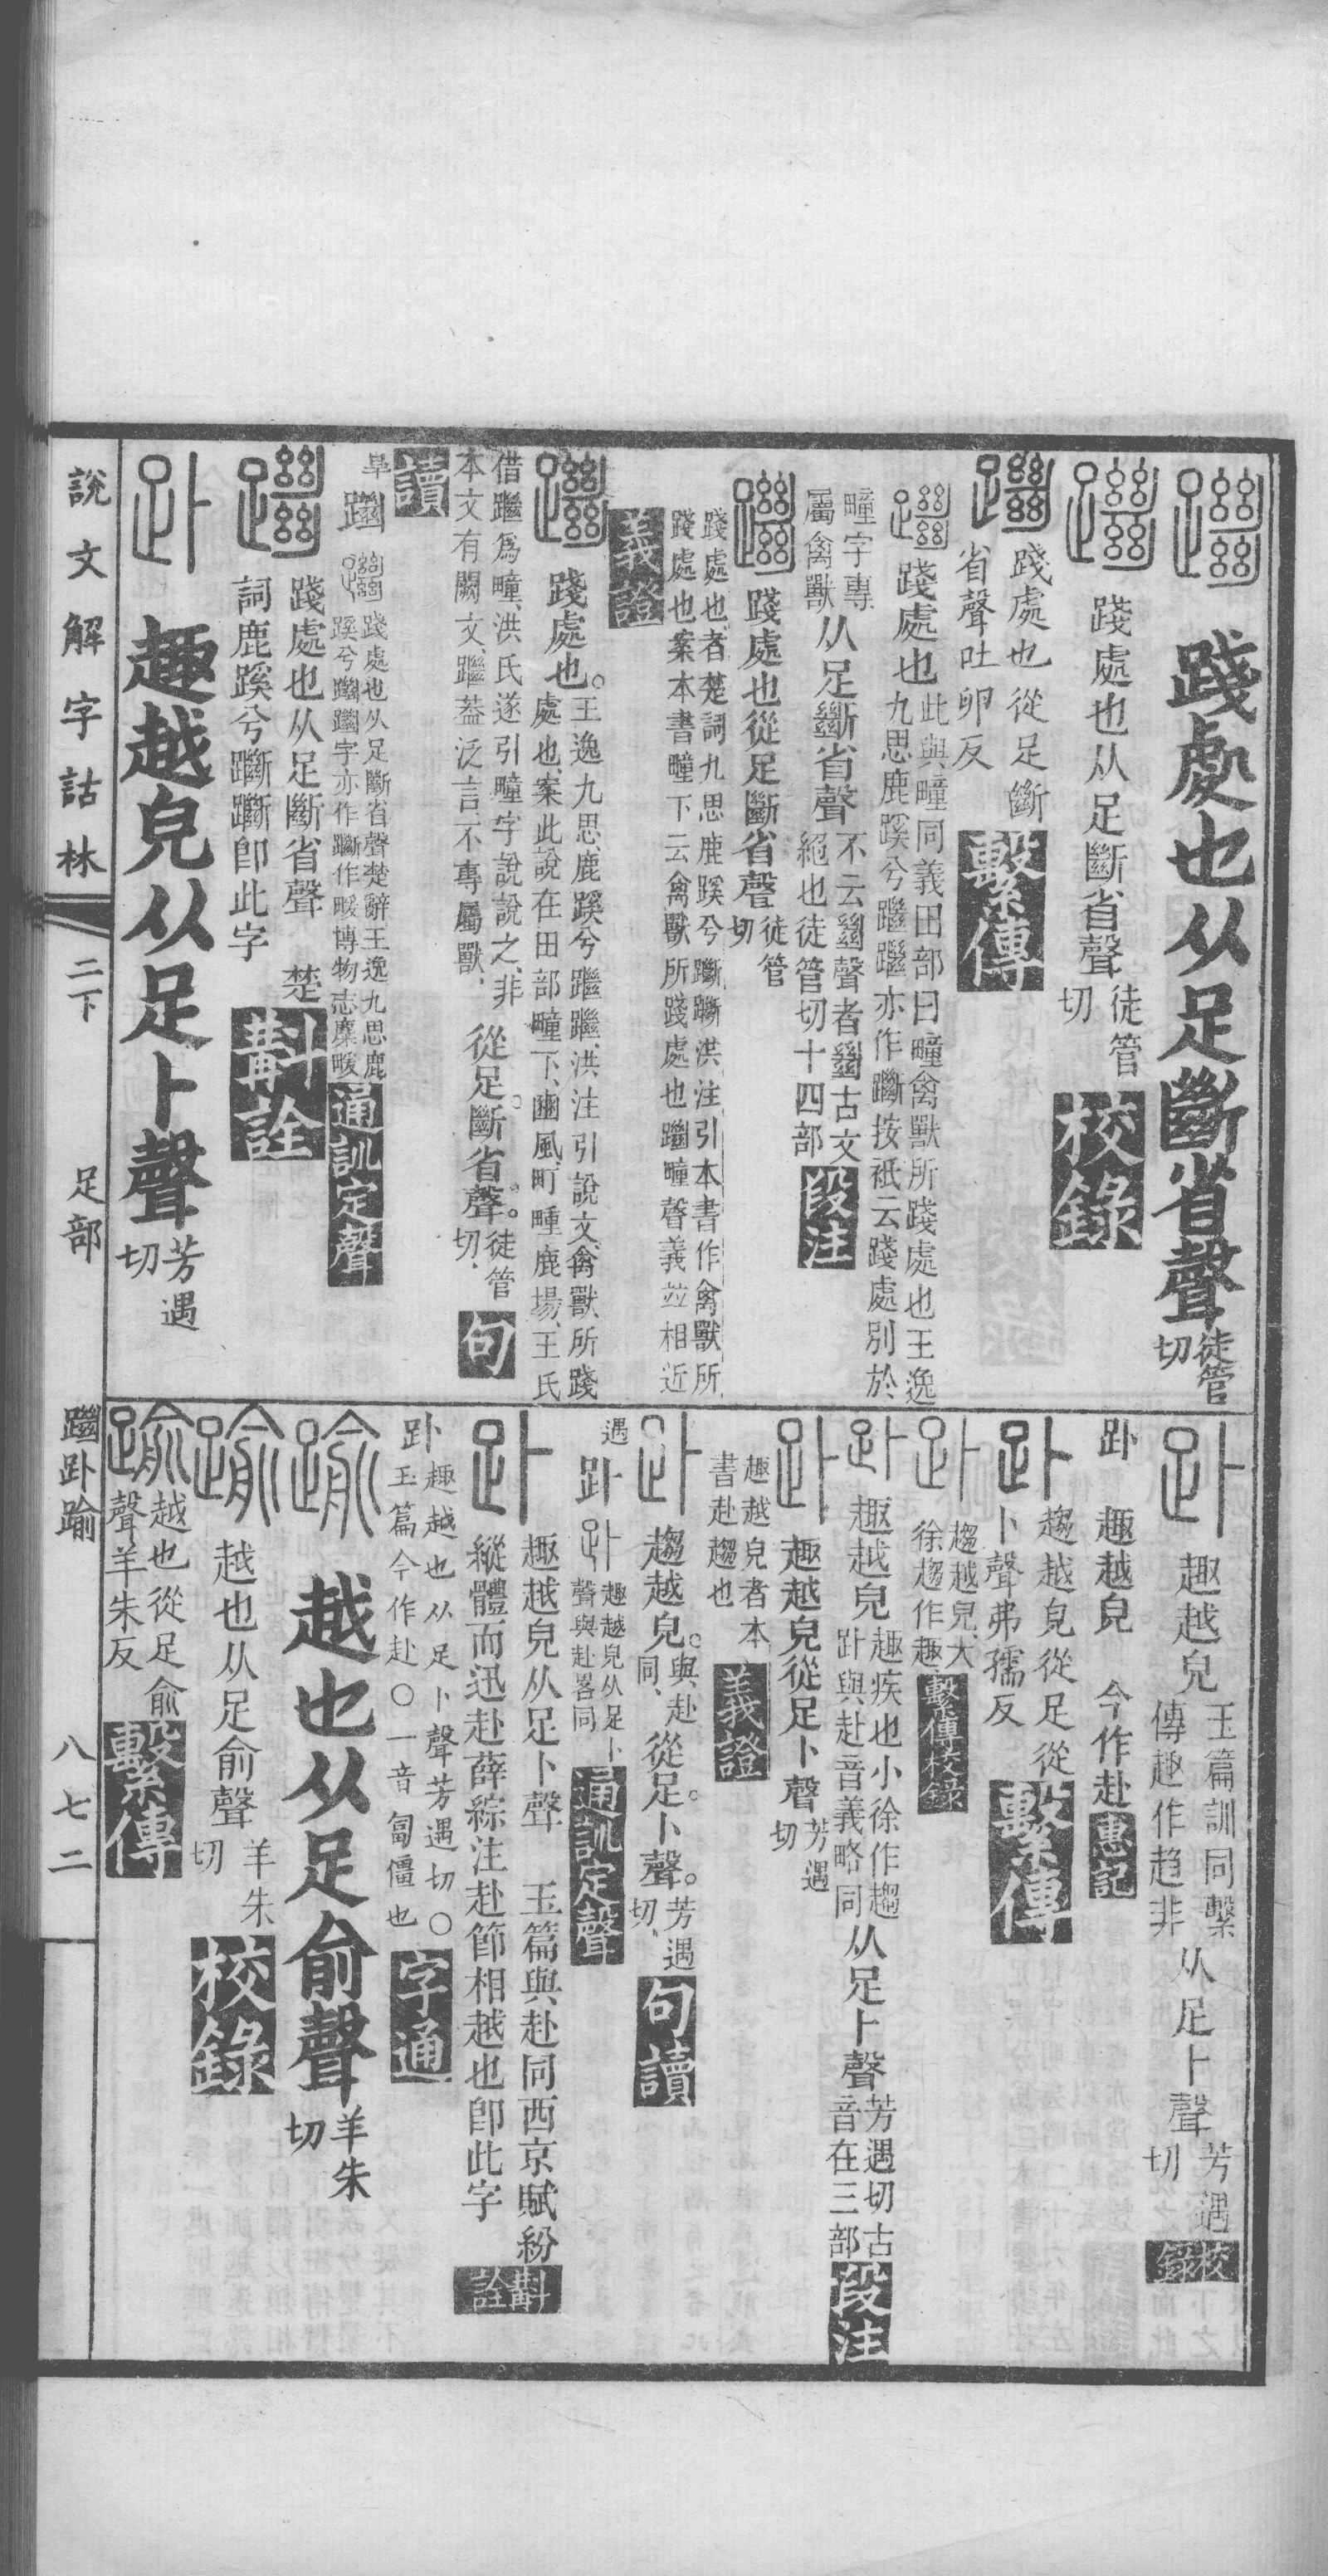 踐處也从足斷省聲徒管切
踐處也从足斷省聲徒管切校錄
踐處也從足斷省聲吐卵反繫傳
踐處也此與疃同義田部曰疃禽獸所踐處也王逸
九思鹿蹊兮躖躖亦作躖按衹云踐處別於
疃字專屬禽獸从足斷省聲不云𢇍聲者𢇍古文
絕也徒管切十四部段注
踐處也從足斷省聲徒管切
踐處也者楚詞九思鹿蹊兮躖躖洪注引本書作禽獸所
踐處也案本書疃下云禽獸所踐處也躖疃聲義竝相近
義證
踐處也。王逸九思、鹿蹊兮躖躖、洪注引說文、禽獸所踐
處也、案此說在田部疃下、豳風、町畽鹿場、王氏
借躖爲疃、洪氏遂引疃字說說之、非
本文有闕文、躖葢泛言不專屬獸、從足。斷省聲。徒管切、句
讀
踐處也从足斷省聲楚辭王逸九思鹿
蹊兮躖躖字亦作躖作暖博物志麋暖通訓定聲
踐處也从足斷省聲 楚
詞鹿蹊兮躖躖卽此字斠詮
趣越皃从足卜聲芳遇切
趣越皃玉篇訓同繫
傳趣作趋非从足卜聲芳遇切校錄
趴 趣越皃 今作赴惠記
趨越皃從足從
卜聲弗孺反繫傳
趨越皃、大
徐趨作趣、繫傳校錄
趣越皃趣疾也小徐作趨
䟔與赴音義略同从足卜聲芳遇切古
音在三部段注
趣越皃從足卜聲芳遇切
趣越皃者本
書赴趨也義證
趨越皃。與赴同、從足。卜聲。芳遇切、句讀
遇䟔趣越皃从足卜
聲與赴畧同通訓定聲
趣越皃从足卜聲 玉篇與赴同西京賦紛
縱體而迅赴薛綜注赴節相越也卽此字斠詮
䟔趣越也从足卜聲芳遇切○
玉篇今作赴○一音匐僵也字通
越也从足俞聲羊朱切
越也从足俞聲羊朱切校錄
越也從足俞
聲羊朱反繫傳
說文解字詁林 二下 足部 躖䟔踰 八七二